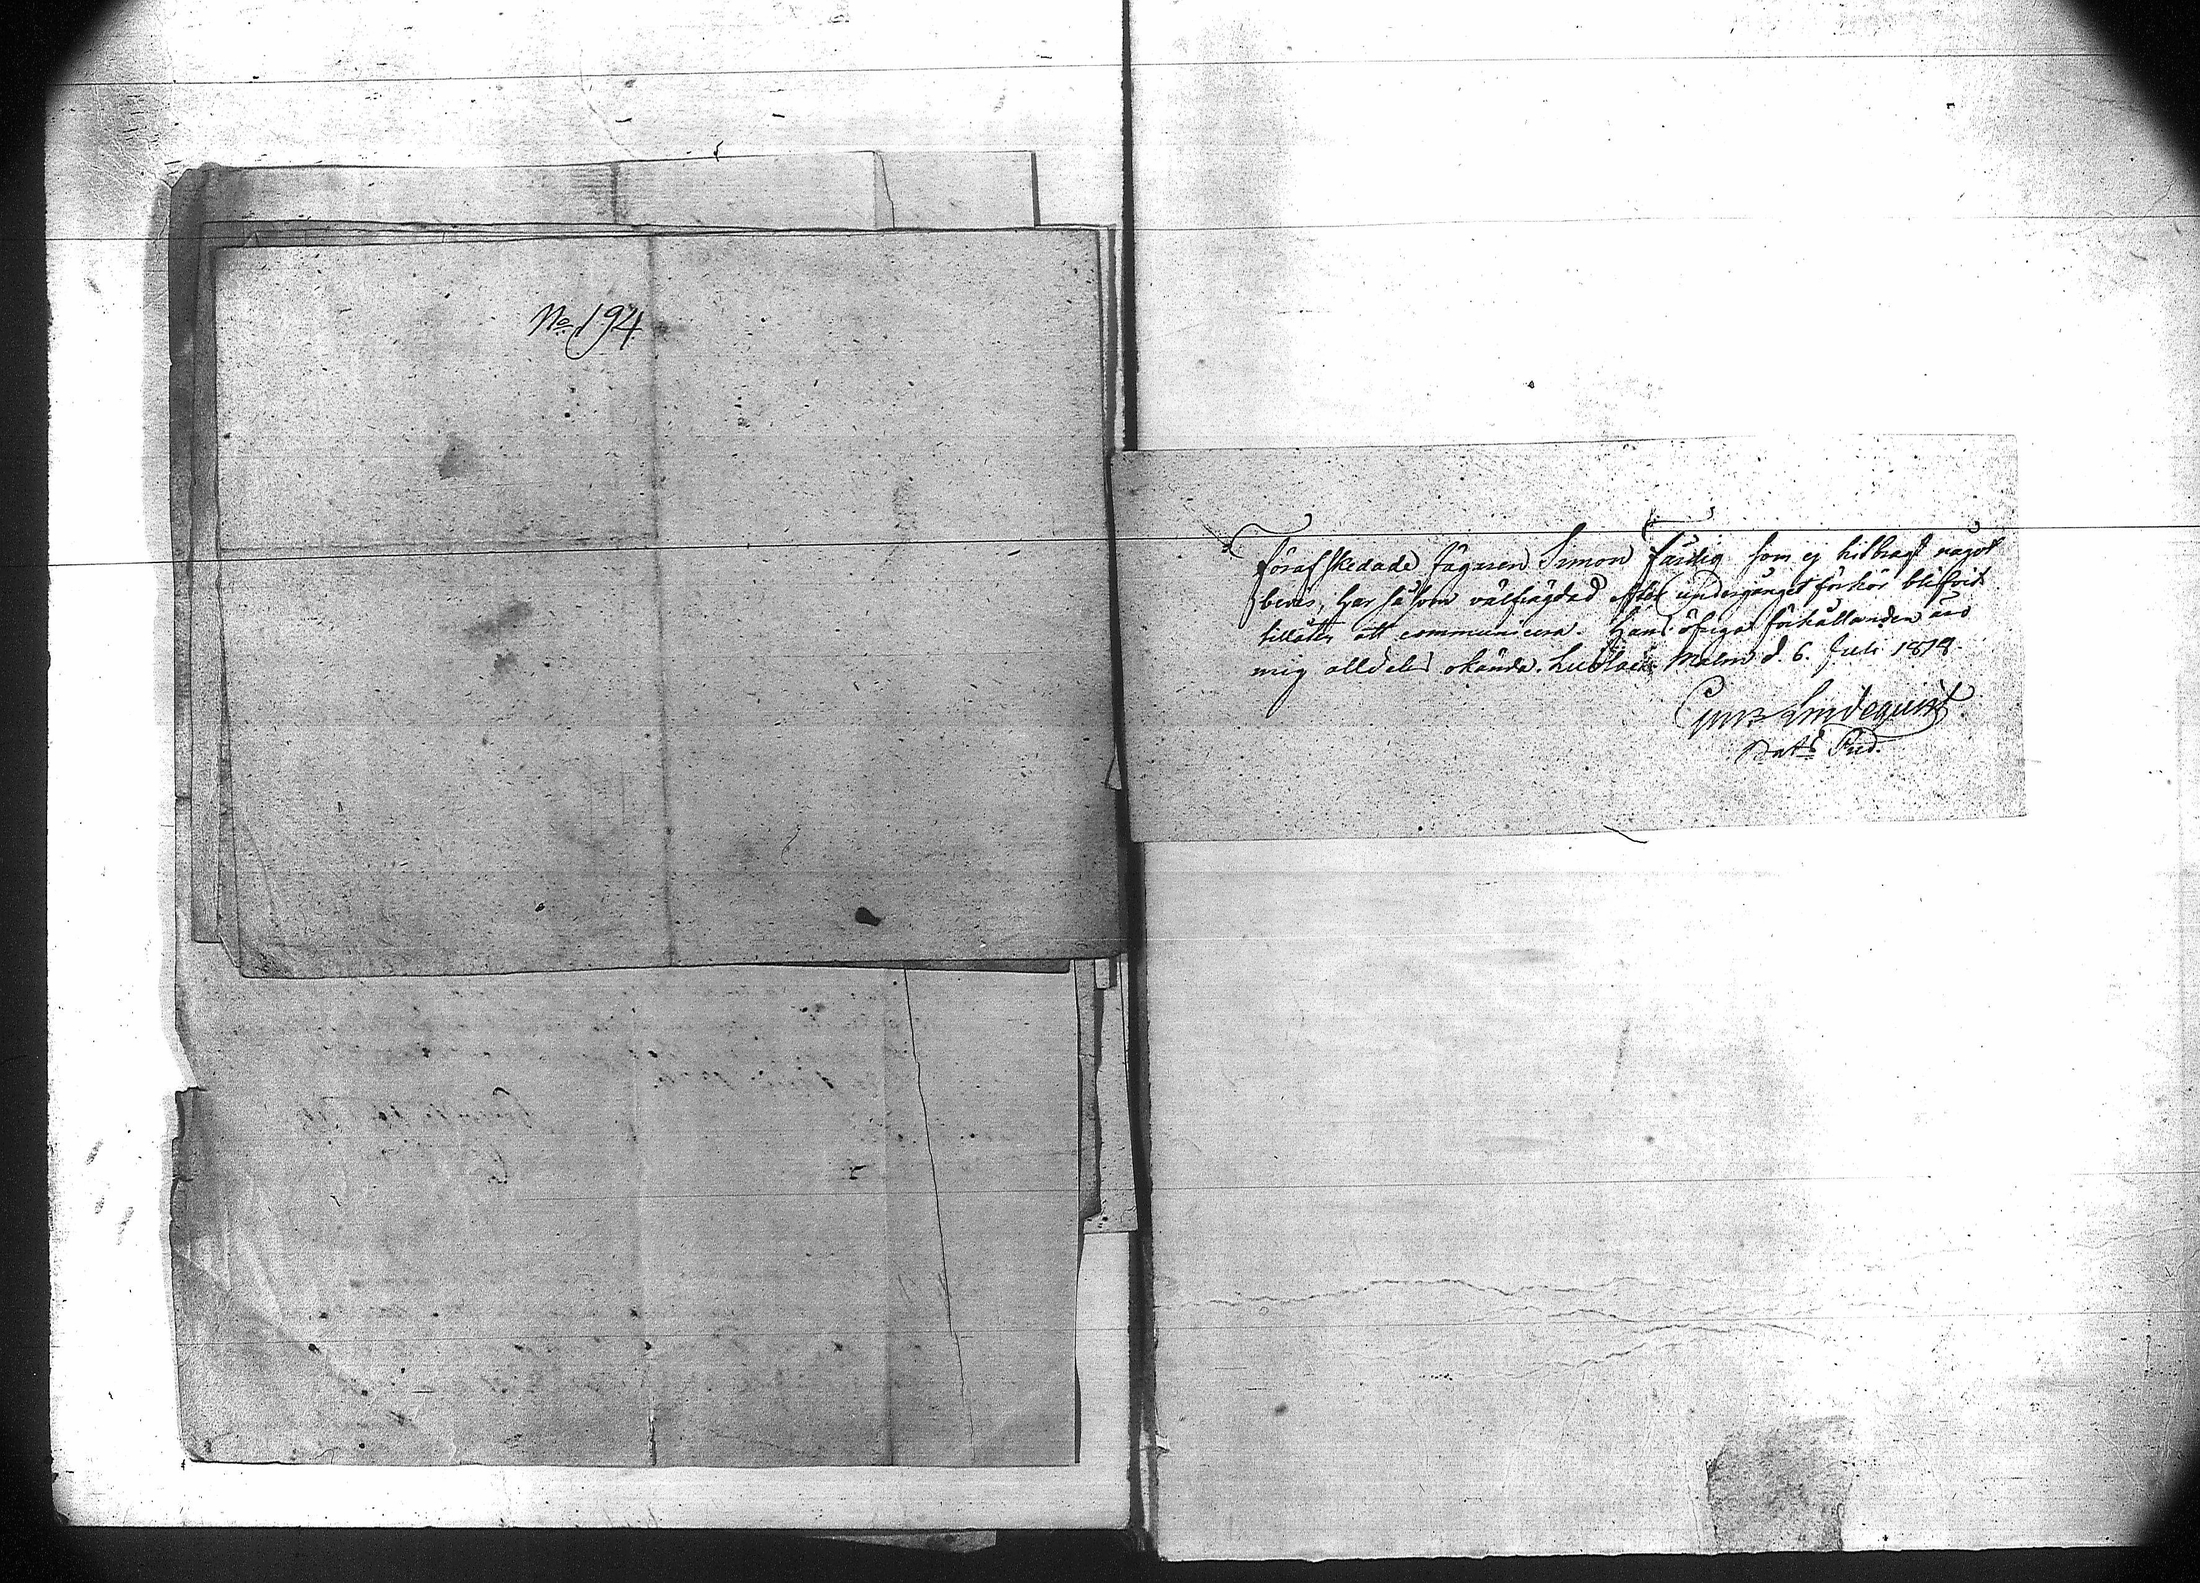 No 194
Förafskedade Jägaren Simon Färdig som ej hitbragt något
bevis, har såsom välfrägdad efter undergånget förhör blifvit
tillåten att communicera. Hans öfriga förhållanden äro
mig alldeles okända. Malm d. 6. Juli 1818.
Lindequist